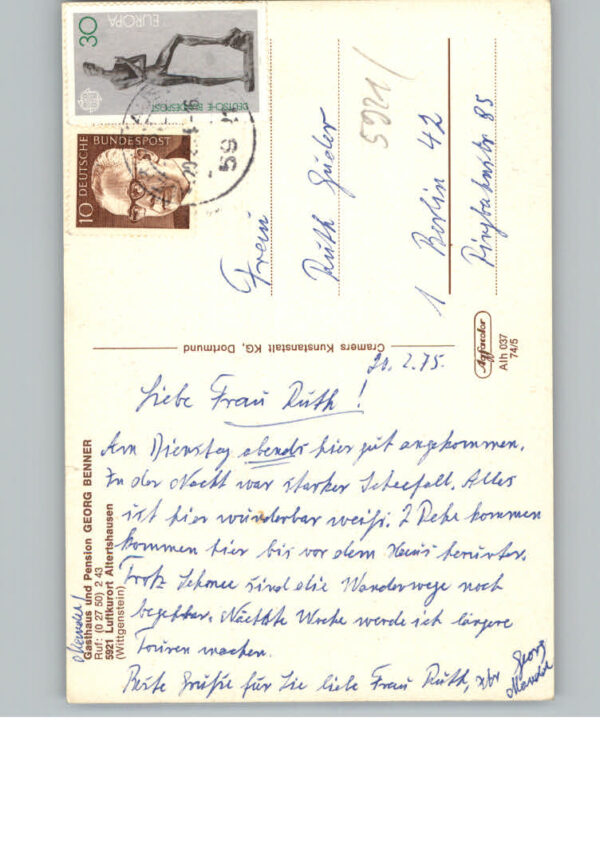 30
EUROPA
DEUTSCHE BUNDESPOST
10 DEUTSCHE BUNDESPOST
59
5921/
Frau
Ruth Guder
1 Berlin 42
Ringbahnstr 85
Cramers Kunstanstalt KG, Dortmund
Agfacolor
Alh 037
74/5
Gasthaus und Pension GEORG BENNER
Ruf: (0 27 50) 2 43
5921 Luftkurort Altertshausen
(Wittgenstein)
20.2.75.
Liebe Frau Ruth!
Am Dienstag abends hier gut angekommen.
In der Nacht war starker Scheefall. Alles
ist hier wunderbar weiß. 2 Rehe kommen
kommen hier bis vor dem Haus herunter.
Trotz Schnee sind die Wanderwege noch
begehbar. Nächste Woche werde ich längere
Touren machen.
Beste Grüße für Sie liebe Frau Ruth, Ihr
Georg